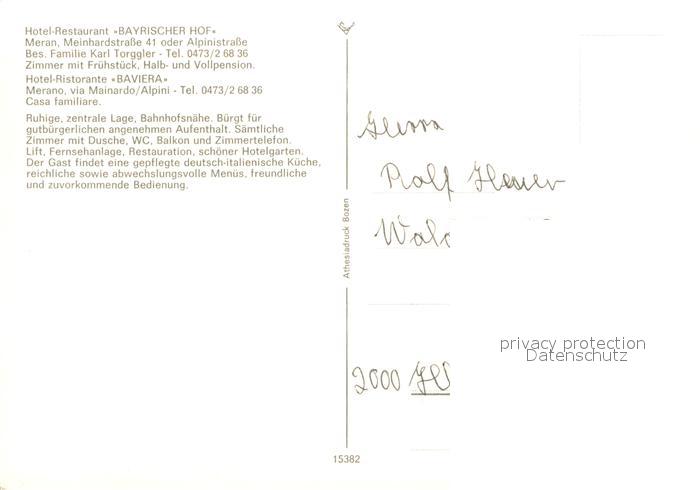 Hotel-Restaurant »BAYRISCHER HOF«
Meran, Meinhardstraße 41 oder Alpinistraße
Bes. Familie Karl Torggler - Tel. 0473/2 68 36
Zimmer mit Frühstück, Halb- und Vollpension.
Hotel-Ristorante »BAVIERA«
Merano, via Mainardo/Alpini - Tel. 0473/2 68 36
Casa familiare.
Ruhige, zentrale Lage, Bahnhofsnähe. Bürgt für
gutbürgerlichen angenehmen Aufenthalt. Sämtliche
Zimmer mit Dusche, WC, Balkon und Zimmertelefon.
Lift, Fernsehanlage, Restauration, schöner Hotelgarten.
Der Gast findet eine gepflegte deutsch-italienische Küche,
reichliche sowie abwechslungsvolle Menüs, freundliche
und zuvorkommende Bedienung.
Athesiadruck Bozen
15382
Herrn
Ralf
2000
privacy protection
Datenschutz